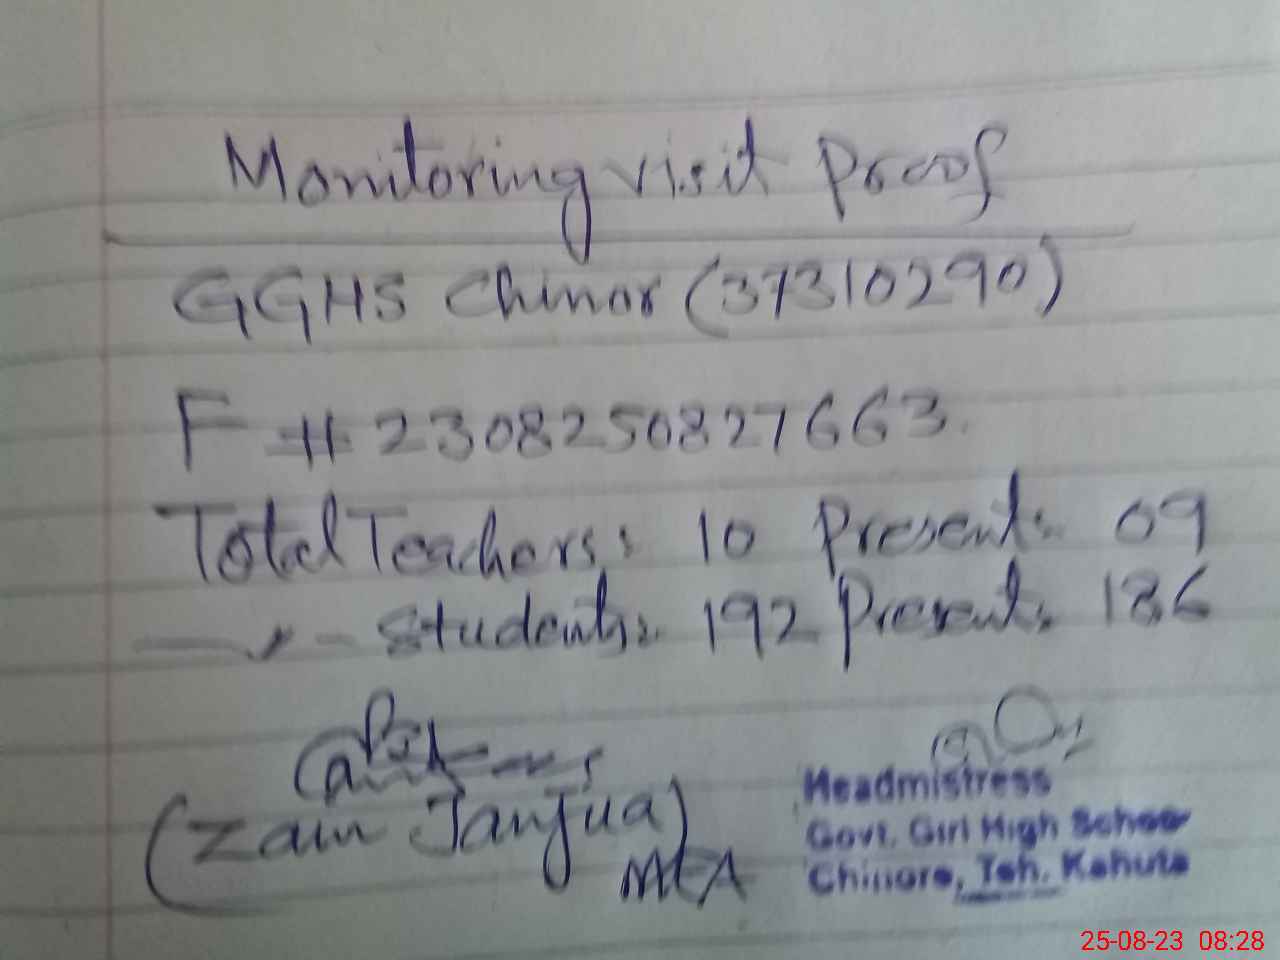 Monitoring visit Proof
GGHS Chinor (37310290)
F # 2308250827663.
Total Teachers: 10 Present: 09
Students: 192 Present: 186
(Zain Janjua)
MEA
Headmistress
Govt. Girl High School
Chinore, Teh. Kahuta
25-08-23 08:28